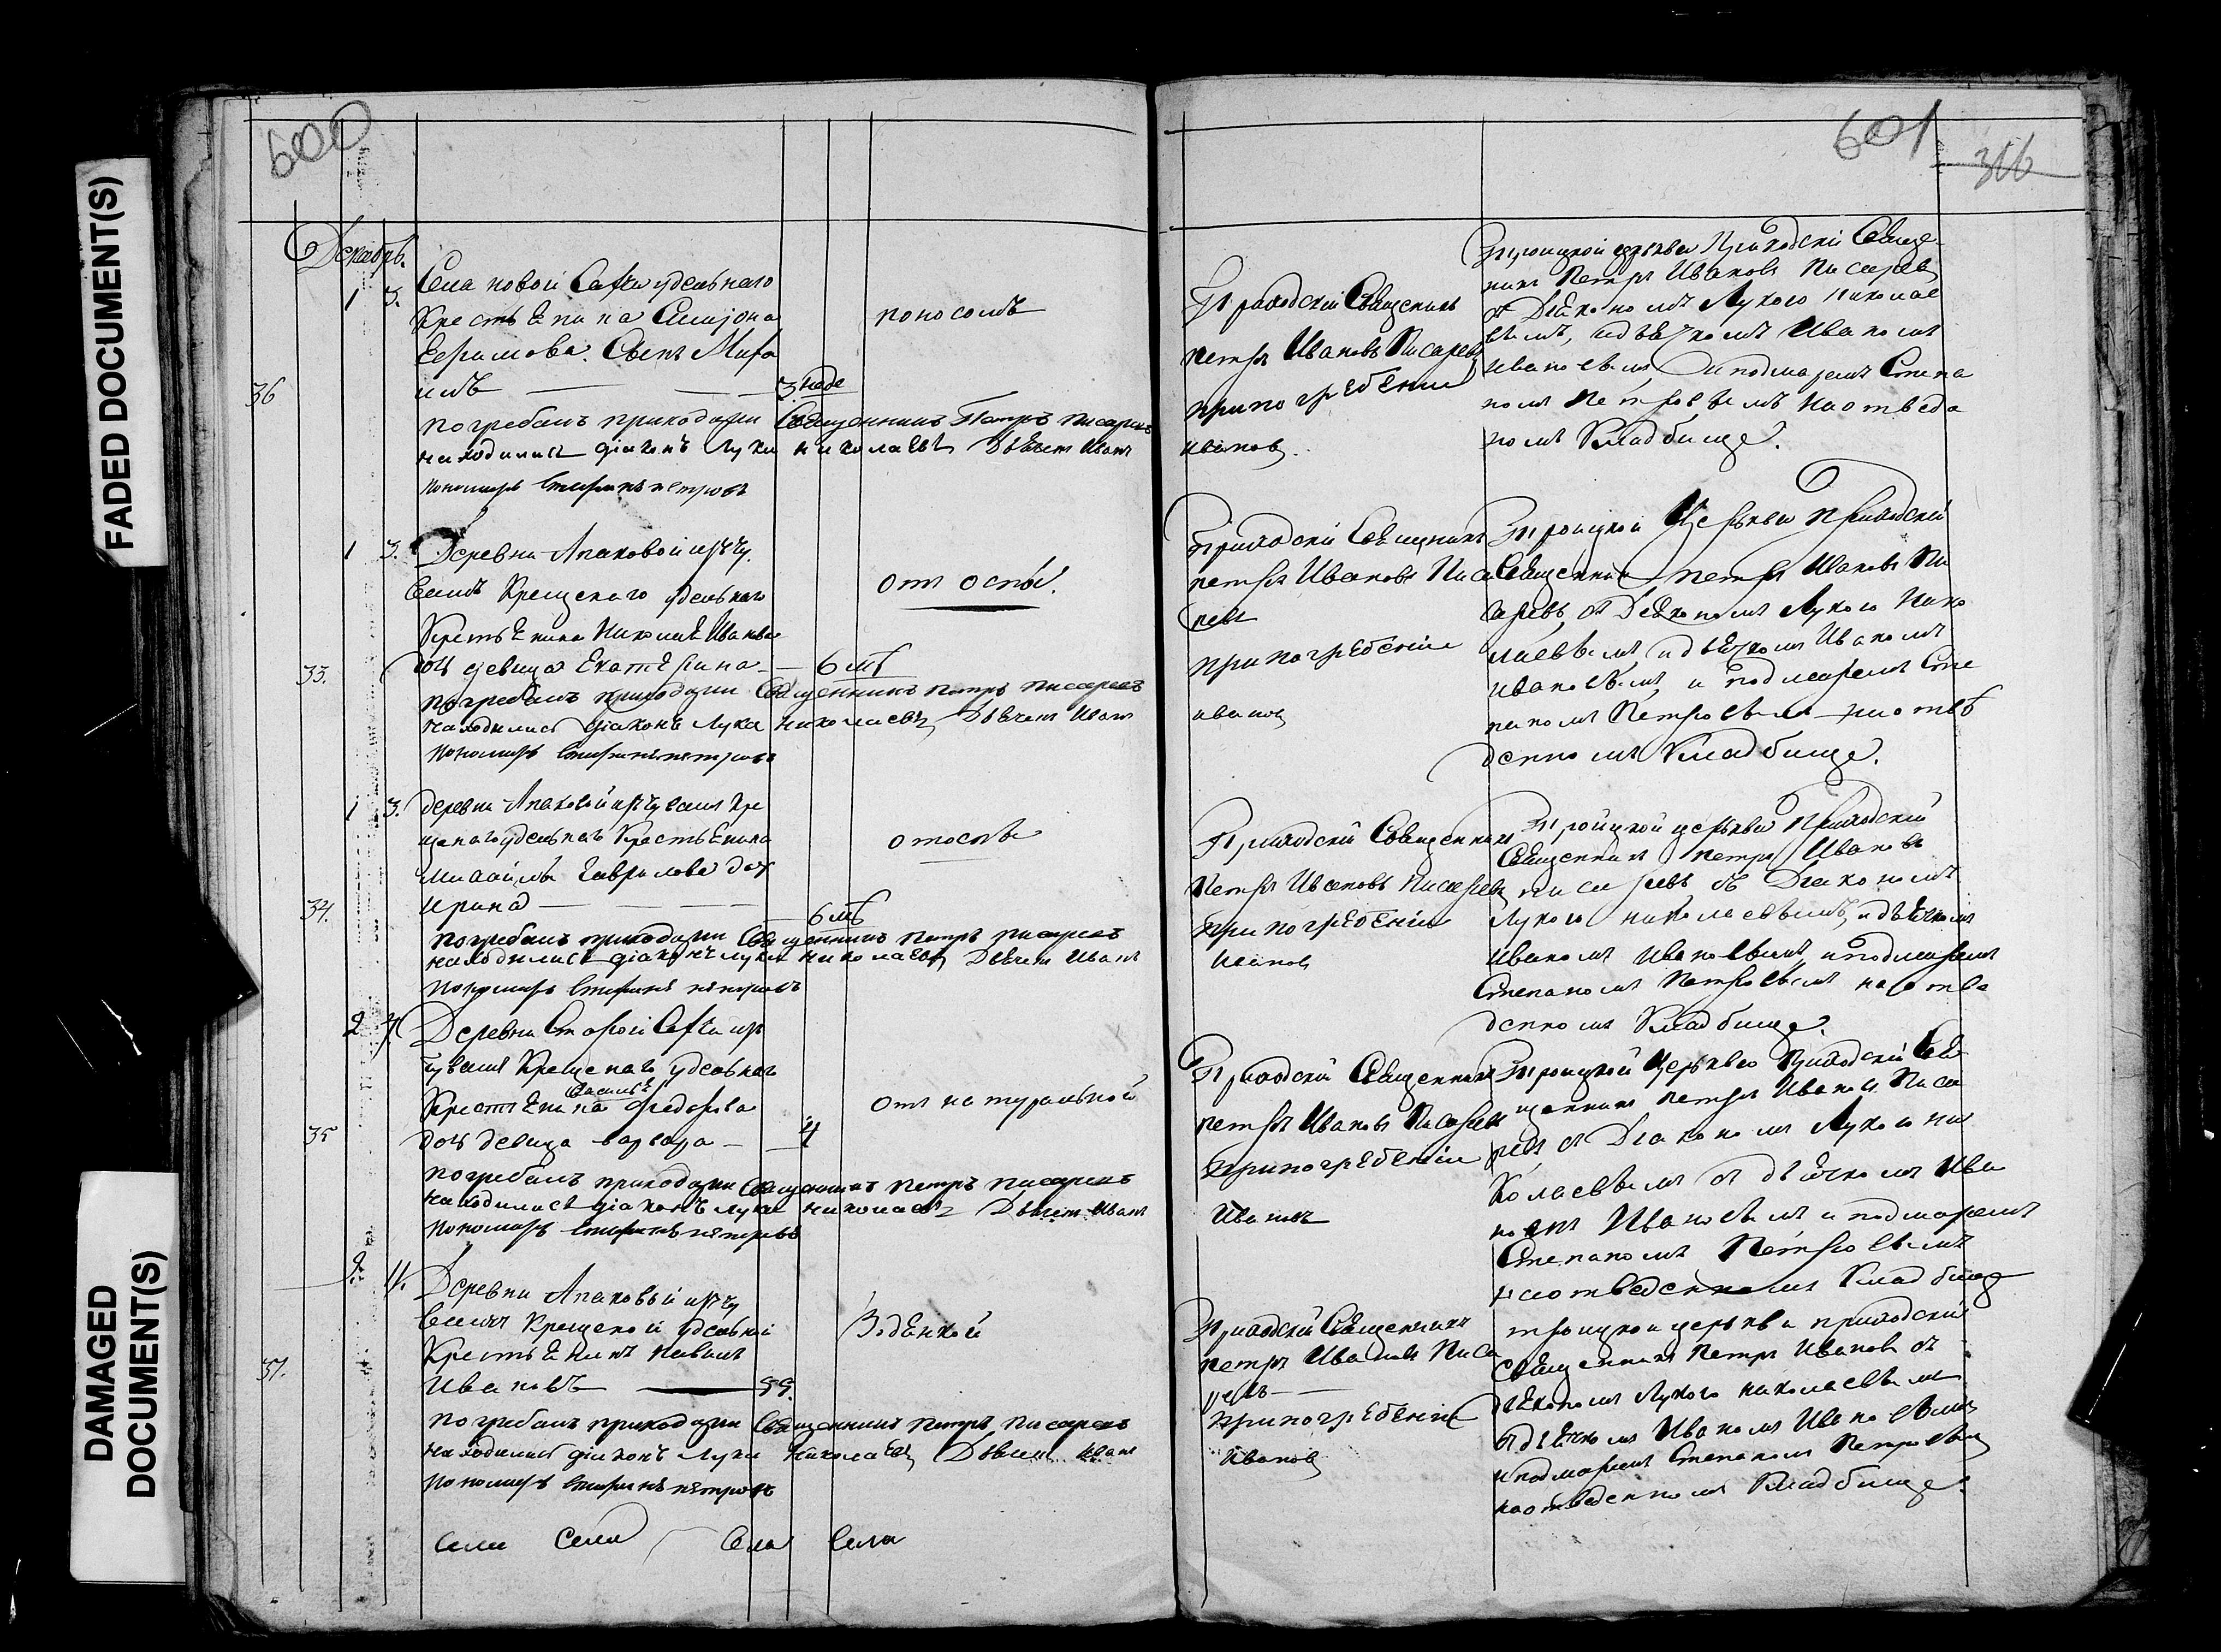 FADED DOCUMENT(S)
DAMAGED DOCUMENT(S)
600
Декабрь.
1 3. Села новой
удельнаго
Крестьенина
Ефимова. Сынъ
36
3 неде
поносомъ
погребалъ приходции Священникъ Петръ Писаревъ
находились діаконъ Лука николаевъ Дьячет Иванъ
пономарь Стефанъ петровъ
1 3. Деревни Апаковой изъ чу
вашъ Крещенаго удельнаго
Крестьенина Николая Иванова
33. дочь девица Екатерина 6 лѣ
отъ оспы.
погребалъ приходции Священникъ петръ Писаревъ
находились діаконъ Лука Николаевъ Дьячет Иванъ
пономарь Стефанъ петровъ
1 3. деревни Апаковой изъ чувашъ кре
щенаго удельнаго Крестьенина
Михаила Гаврилова доч
34. ирина 6 лѣ
отоспы
погребалъ приходции Священникъ петръ писаревъ
находились діаконъ лука николаевъ Дьячет Иванъ
пономарь Стефанъ петровъ
2 4 Деревни Старой изъ
чувашъ Крещенаго удельнаго
Крестьенина Федорова
35 дочь девица варвара 4
отъ натуральной
погребалъ приходции Священникъ петръ писаревъ
находились діаконъ Лука николаевъ Дьячет Иванъ
пономарь Стефанъ петровъ
2. 4. Деревни Апаковый изъ чу
вашъ Крещеной удельной
Крестьенинъ
37. Ивановъ 55.
погребалъ приходции Священникъ петръ Писаревъ
находились діаконъ Лука Николаевъ Дьячет Иванъ
пономарь Стефанъ петровъ
Села Села Села Села
601
316
Приходскій Священникъ
петръ Ивановъ Писаревъ
припогребеніи
иванов
Троицкой церкви Приходскій Свяще
никъ Петръ Ивановъ Писарев
съ Дьякономъ Лукою Николае
вымъ, и дьячкомъ Иваномъ
Ивановымъ и подмаремъ Степа
номъ Петровымъ на отведе
номъ Кладбище.
Приходскій Священикъ
петръ Ивановъ Писа
ревъ
припогребеніи
иванов
Троицкой Церкви приходскій
Священникъ петръ Ивановъ Пи
саревъ съ Дьякономъ Лукою Нико
лаевымъ и дьячкомъ Иваномъ
Ивановымъ и подмаремъ Сте
паномъ Петровымъ на отвѣ
денномъ Кладбище.
Приходскій Священникъ
Петръ Ивановъ Писаревъ
припогребеніи
Иванов
Тройцкой церкви Приходскій
Священникъ Петръ Ивановъ
писаревъ съ Диакономъ
Лукою николаевымъ, и дьячкомъ
Иваномъ Ивановымъ, и подмаремъ
Степаномъ Петровымъ на отве
денномъ Кладбище.
Приходскій Священникъ
петръ Ивановъ Писаревъ
припогребеніи
Ивановъ
Троицкой Церквы Приходскій Свя
щенникъ петръ Ивановъ Писа
ревъ съ Диакономъ Лукою Ни
колаевымъ съ дьячкомъ Ива
номъ Ивановымъ и подмаремъ
Степаномъ Петровымъ
на отведенномъ Кладбище
Приходскій Священникъ
петръ Ивановъ Писа
ревъ
припогребеніи
Иванов
троицкои церькви приходскій
священникъ Петръ Ивановъ съ
дьякономъ Лукою николаевымъ
съ дьячкомъ Иваномъ Ивановымъ
и подмаремъ Степаномъ Петровымъ
на отведенномъ Кладбище.